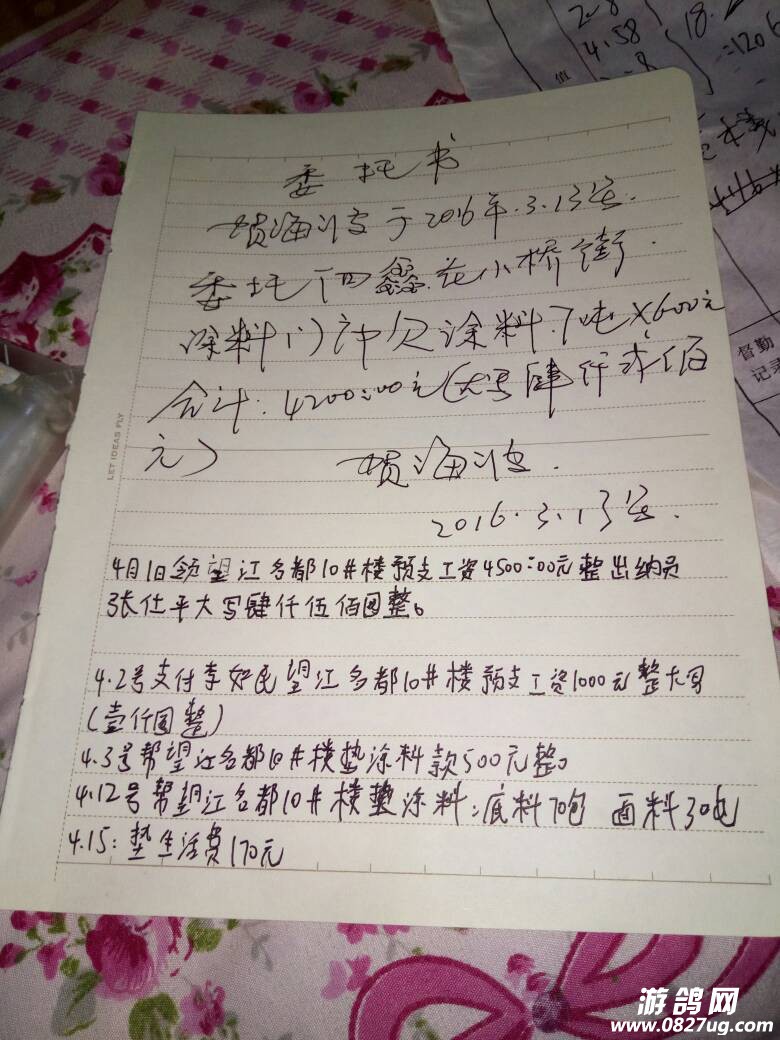 2.8
4.58
8
18.2
=1206
值
督勤
记录
委托书
贺海波于2016年.3.13号.
委托丁四鑫.在小桥街.
涂料门市欠涂料.7吨×600元
合计:4200=00元(大写肆仟贰佰
元)
贺海波.
2016.3.13号.
LET IDEAS FLY
4月1日领望江名都10#楼预支工资4500=00元整出纳员
张仕平大写肆仟伍佰圆整。
4.2号支付李好民望江名都10#楼预支工资1000元整大写
(壹仟圆整)
4.3号帮望江名都10#楼垫涂料款500元整。
4.12号帮望江名都10#楼垫涂料:底料70包 面料30包
4.15:垫生活费170元
游鸽网
www.0827ug.com